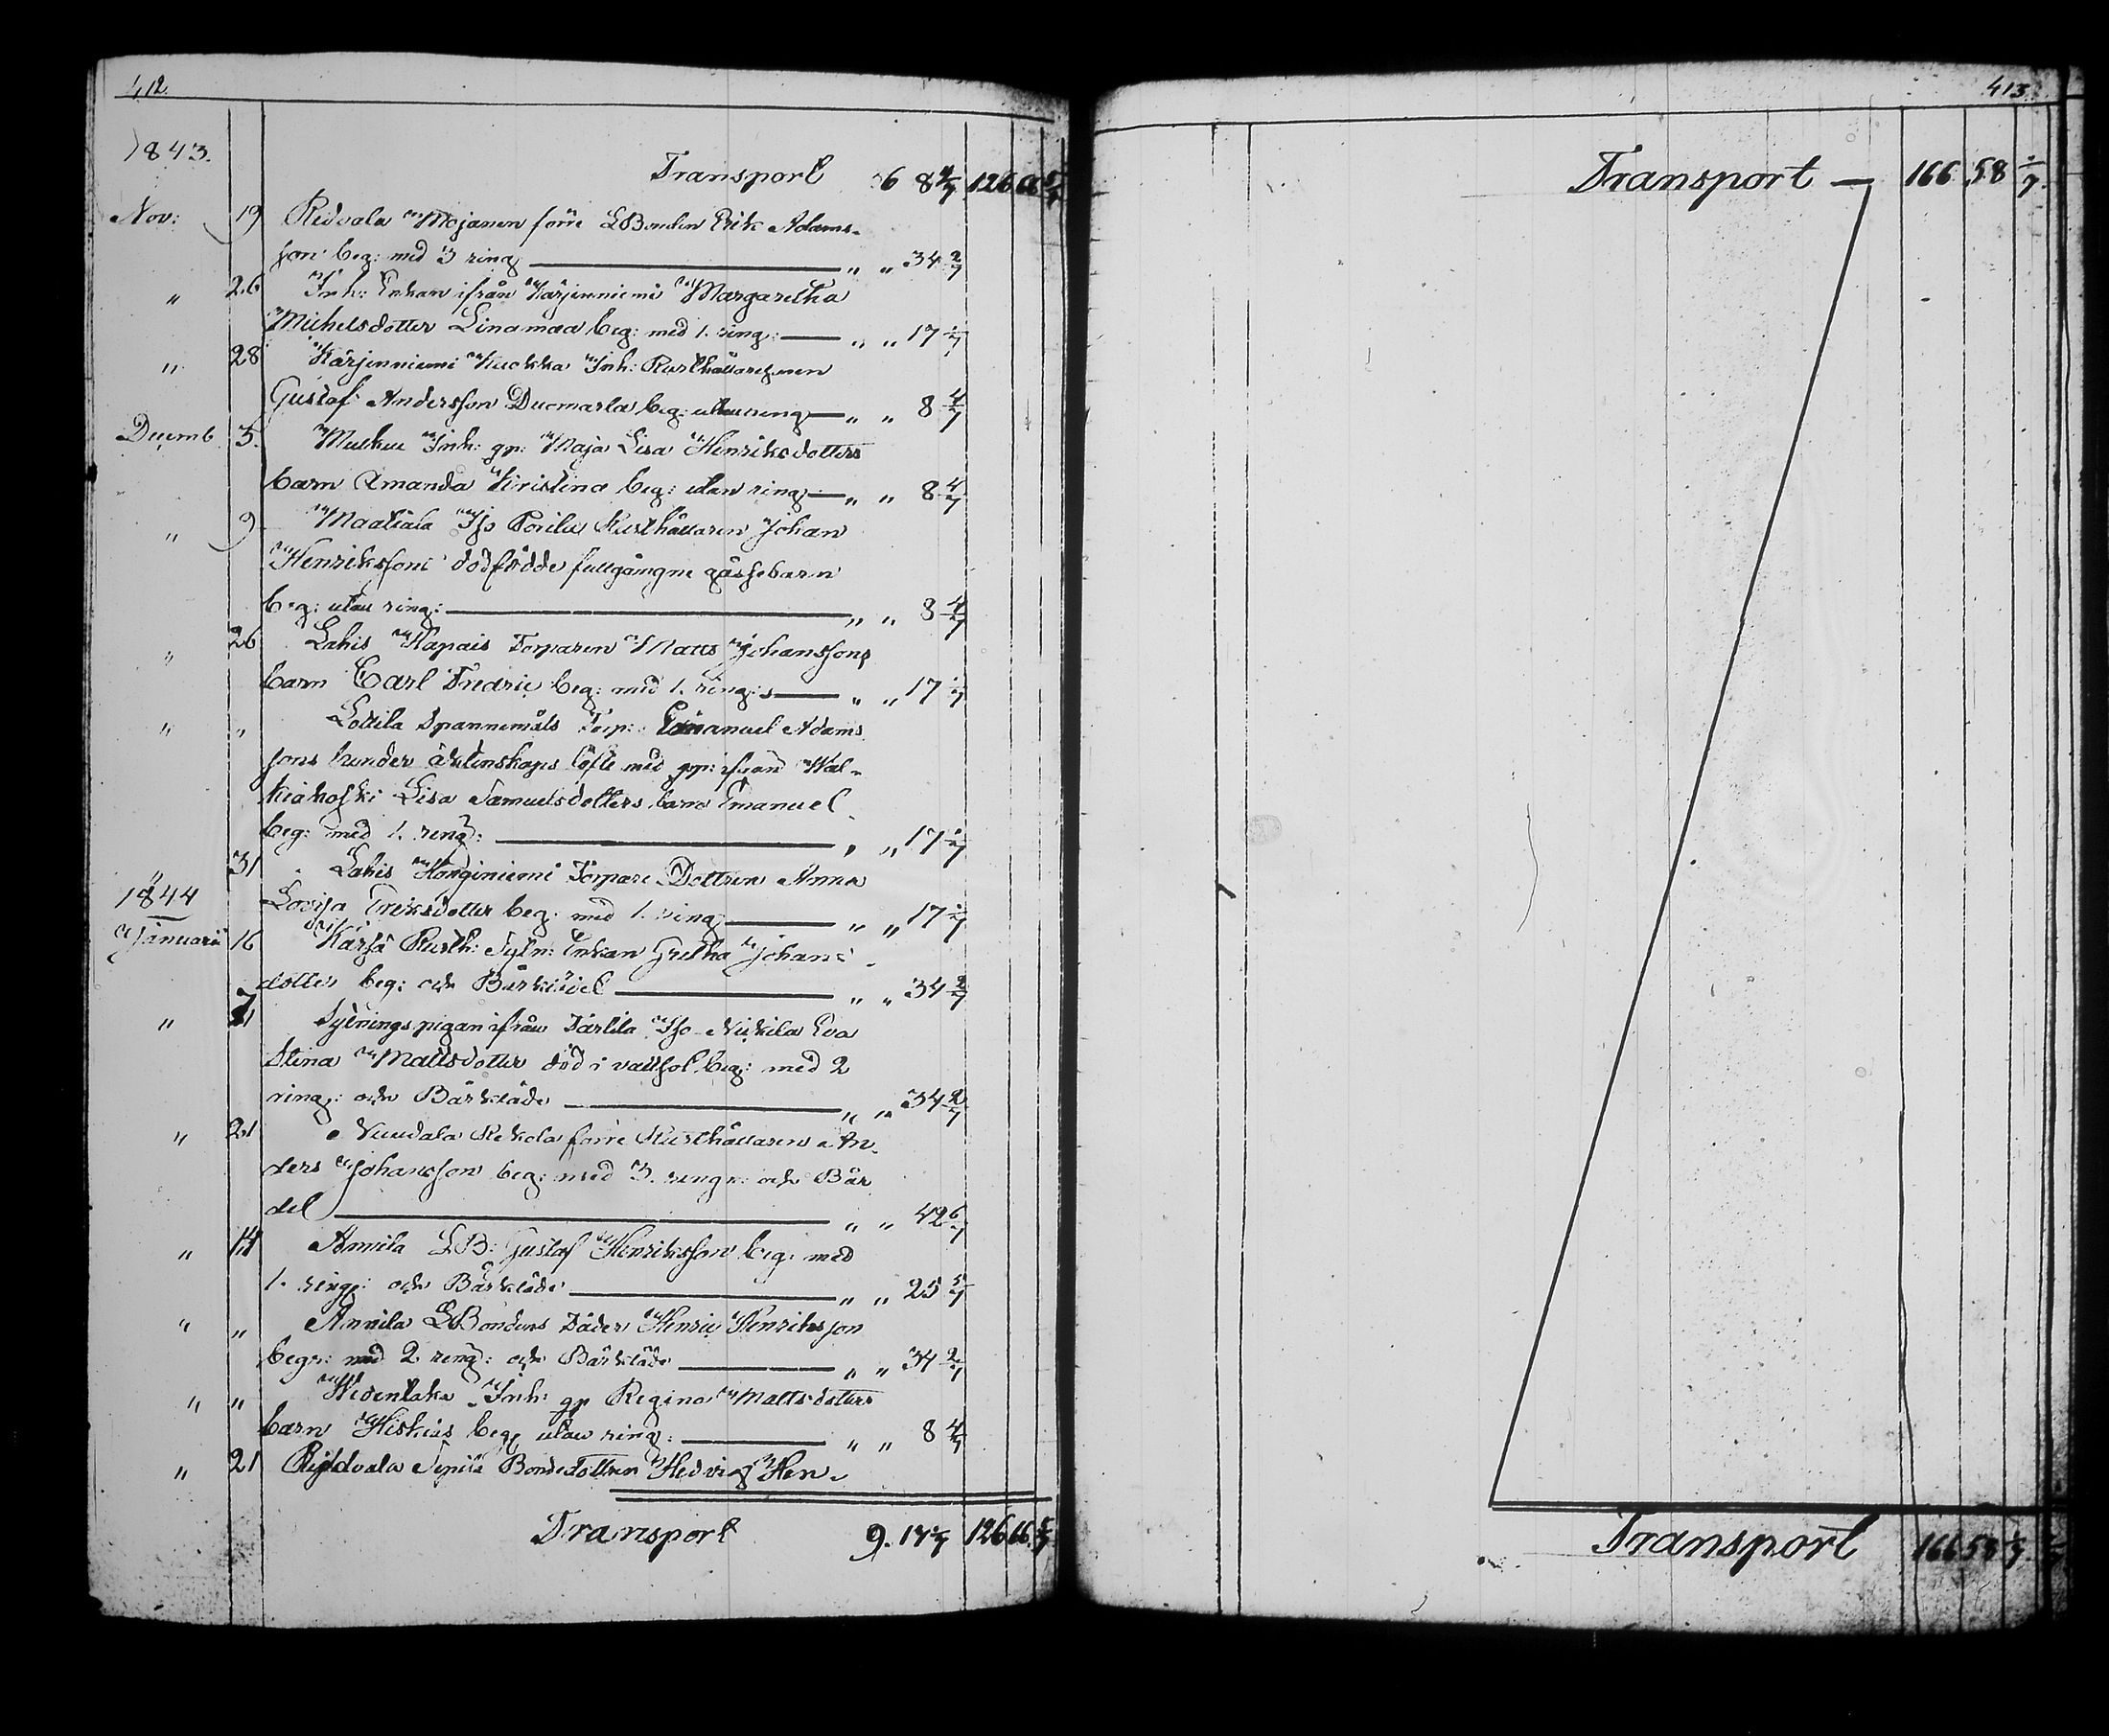 412.
1843.
Transport 6 8 4/7 126 66 5/7
Nov: 19 Ridvala Mojanen förre LBonden Erik Adams-
son beg: med 3 ring „ „ 34 2/7
„ 26 Inh: Enkan ifrån Kärjenniemi Margaretha
Michelsdotter Linamaa beg: med 1. ring: „ „ 17 1/7
„ 28 Kärjenniemi Kuokka Inh: Rusthållaresonen
Gustaf Andersson Ducmarla beg: utan ring „ „ 8 4/7
Decemb 3. Inh: gp: Maja Lisa Henriksdotters
barn Amanda Kristina beg: utan ring „ „ 8 4/7
„ 9 Maatiala Iso Porila Rusthållaren Johan
Henrikssons dödfödde fullgångne gåssebarn
beg: utan ring: „ „ 8 4/7
„ 26 Lahis Kapais Torparen Matts Johanssons
barn Carl Fredric beg: med 1. ring: „ „ 17 1/7
„ „ Lottila Spannemåls Torp: Emanuel Adams
sons under äktenskaps löfte med gp: ifrån Wal-
kiakoski Lisa Samuelsdotters barn Emanuel
beg: med 1. ring: „ „ 17 1/7
„ 31 Lahis Honginiemi Torpare Dottren Anna
1844
Lovisa Eriksdotter beg: med 1. ring „ „ 17 1/7
Januari 16 Kärsä Rusth: Sytn: Enkan Gretha Johans
dotter beg: och Bårkläde „ „ 34 2/7
„ Sytningspigan ifrån Tarttila Iso Nickila Eva
Stina Mattsdotter död i vattsot beg: med 2
ring: och Bårkläde „ „ 34 2/7
„ 21 Rekola förre Rusthållaren An-
ders Johansson beg: med 3. ring: och Bår
del „ „ 42 6/7
„ 14 Annila LB: Gustaf Henriksson beg: med
1. ring: och Bårkläde „ „ 25 5/7
„ „ Annila LBondens Fader Henric Henriksson
begr: med 2 ring: och Bårkläde „ „ 34 2/7
„ „ Inh: gp Regina Mattsdotters
barn Hiskias beg utan ring: „ „ 8 4/7
„ 21 Ridvala Seppilä Bondedottren Hedvig Hen-
Transport 9. 17 1/7 126 66 5/7
413
Transport — 166 58 1/7
Transport 166 58 1/7